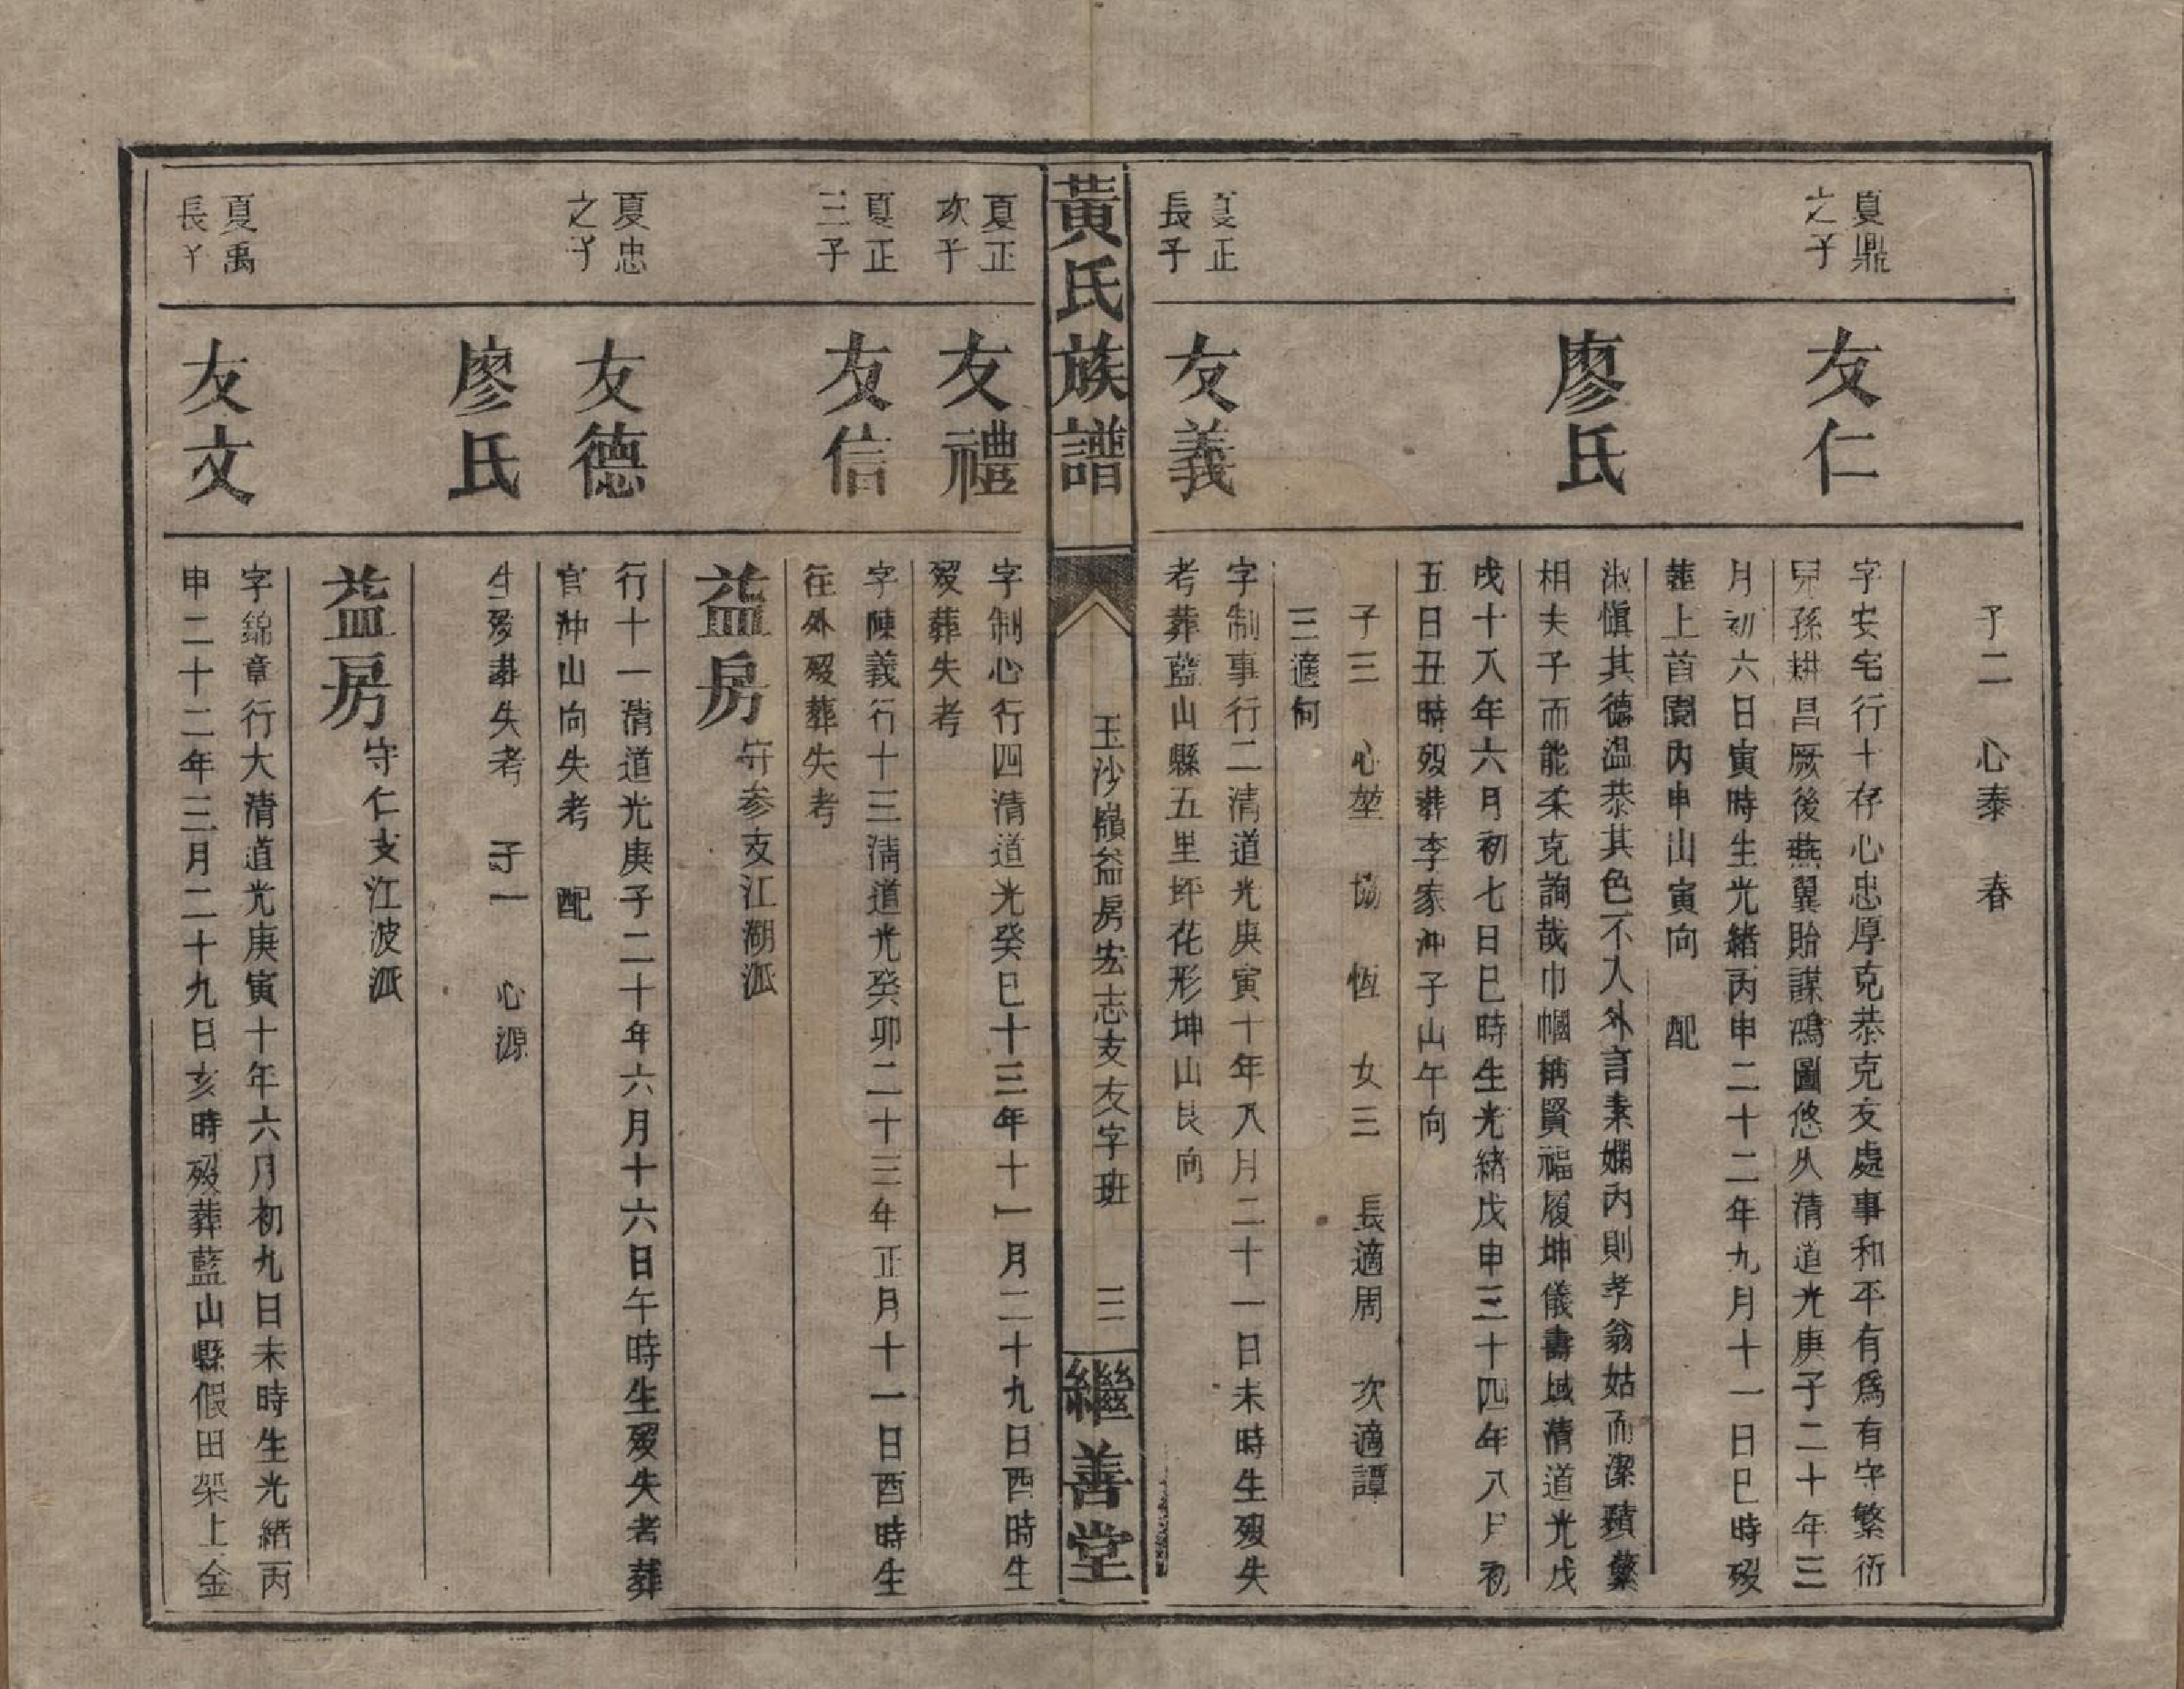 子二 心泰 春
夏鼎
之子
友仁
字安宅行十存心忠厚克恭克友處事和平有爲有守繁衍
兒孫耕昌厥後燕翼貽謀鴻圖悠久清道光庚子二十年三
月初六日寅時生光緒丙申二十二年九月十一日巳時殁
葬上首園內申山寅向 配
廖氏
淑愼其德温恭其色不入外言素嫻內則孝翁姑而潔蘋蘩
相夫子而能柔克詢哉巾幗稱賢福履坤儀壽域清道光戊
戌十八年六月初七日巳時生光緒戊申三十四年八月初
五日丑時殁葬李家冲子山午向
子三 心堃 協 恆 女三 長適周 次適譚
三適何
夏正
長子
友義
字制事行二清道光庚寅十年八月二十一日未時生殁失
考葬藍山縣五里坪花形坤山艮向
黃氏族譜
玉沙嶺益房宏志支友字班 三
繼善堂
夏正
次子
友禮
字制心行四清道光癸巳十三年十一月二十九日酉時生
殁葬失考
夏正
三子
友信
字陳義行十三清道光癸卯二十三年正月十一日酉時生
往外殁葬失考
益房 守参支江湖派
夏忠
之子
友德
行十一清道光庚子二十年六月十六日午時生殁失考葬
官冲山向失考 配
廖氏
生殁葬失考 子一 心源
益房 守仁支江波派
夏禹
長子
友文
字錦章行大清道光庚寅十年六月初九日未時生光緒丙
申二十二年三月二十九日亥時殁葬藍山縣假田架上金